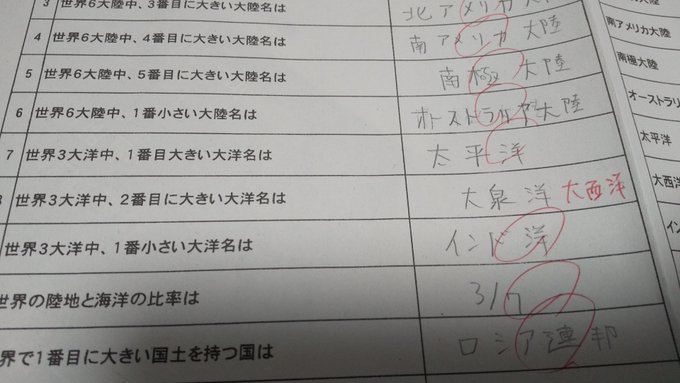 3 世界6大陸中、3番目に大きい大陸名は 北アメリカ大陸
4 世界6大陸中、4番目に大きい大陸名は 南アメリカ 大陸 南アメリカ大陸
5 世界6大陸中、5番目に大きい大陸名は 南極 大陸 南極大陸
6 世界6大陸中、1番小さい大陸名は オーストラリア大陸 オーストラリ
7 世界3大洋中、1番目大きい大洋名は 太平洋 太平洋
8 世界3大洋中、2番目に大きい大洋名は 大泉洋 大西洋 大西洋
世界3大洋中、1番小さい大洋名は インド洋 イン
世界の陸地と海洋の比率は 3/7
界で1番目に大きい国土を持つ国は ロシア連邦